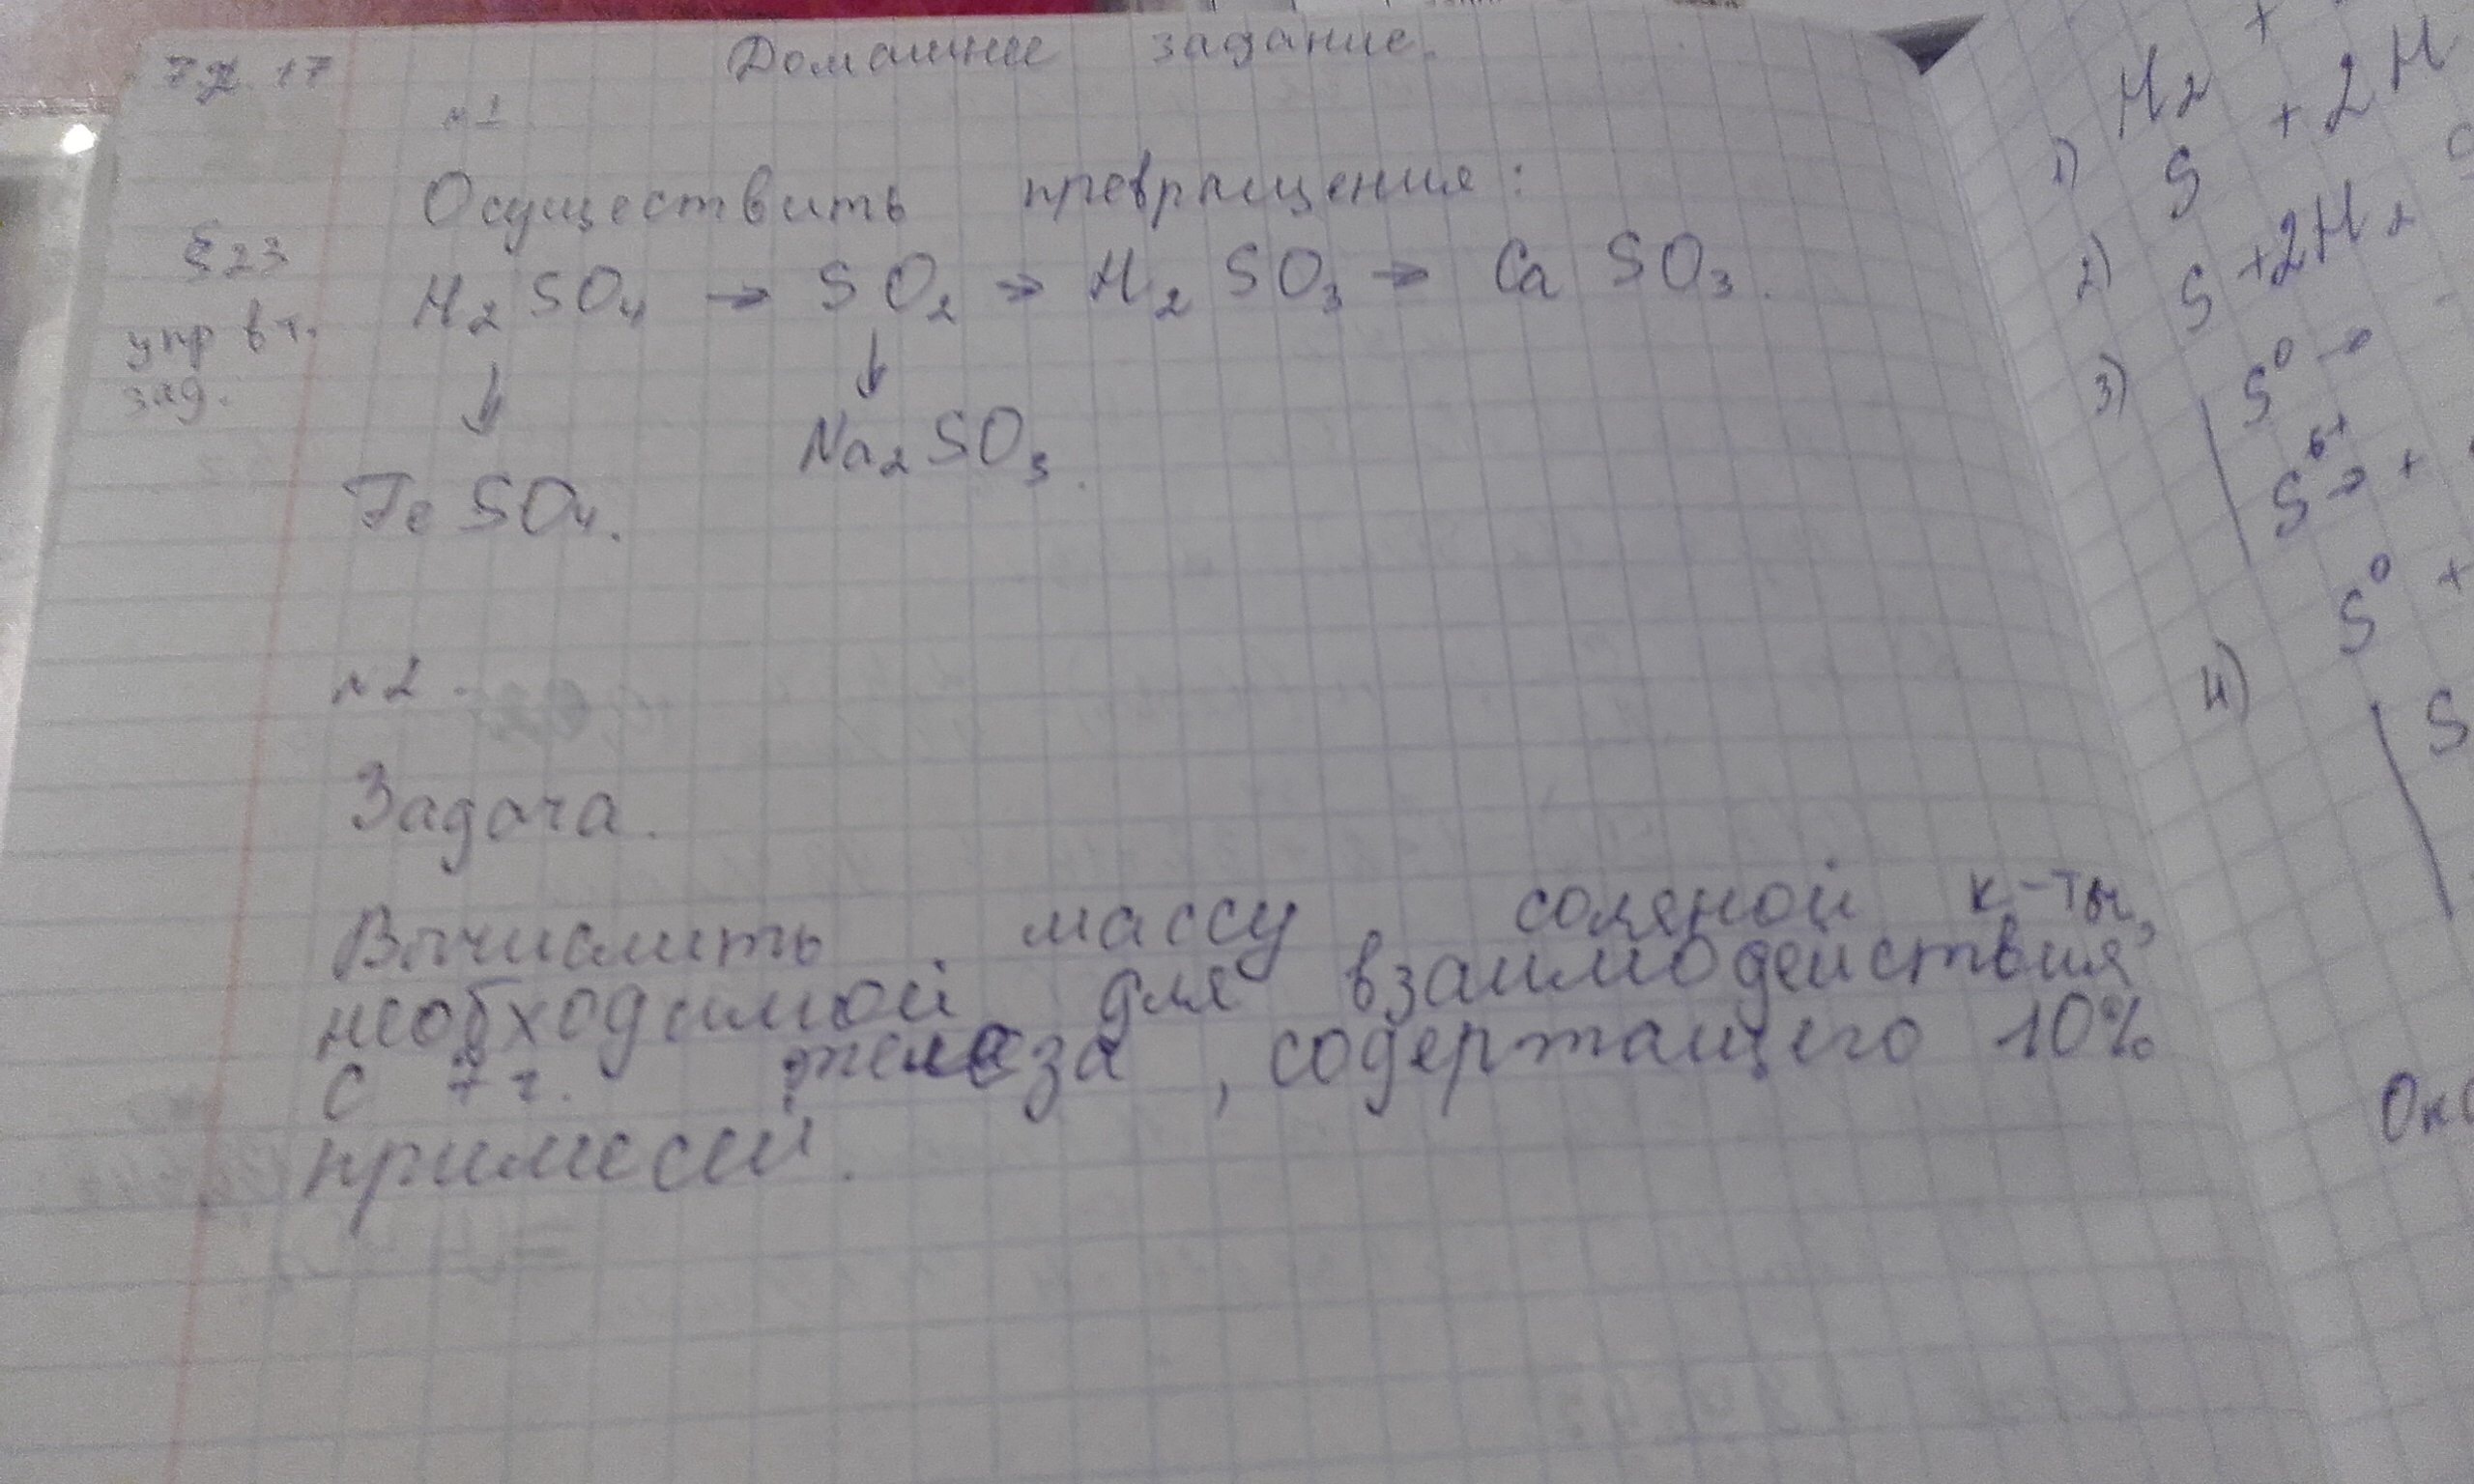 Домашнее задание.
№1
Осуществить превращения:
§23
упр в т.
зад.
H₂SO₄ → SO₂ → H₂SO₃ → CaSO₃.
↓ ↓
FeSO₄. Na₂SO₃.
№2.
Задача.
Вычислить массу соляной к-ты,
необходимой для взаимодействия
с 7 г. железа, содержащего 10%
примесей.
H₂ +
1) S + 2H
2) S + 2H₂
3) S⁰ →
S⁶⁺ → +
4) S⁰ +
S